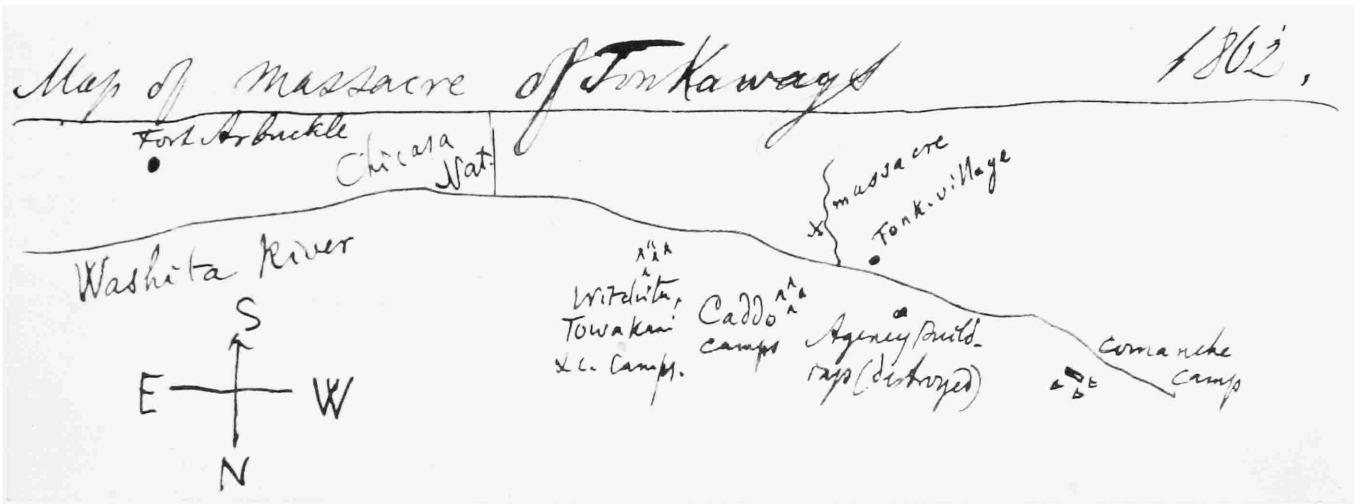 Map of massacre of Tonkaways 1862.
Fort Arbuckle
Chicasa
Nat.
massacre
x
Tonk. village
Washita River
Witchita,
Towakani
&c. Camps.
Caddo
camps
Agency Build-
ings (distroyed)
Comanche
Camp
S
E W
N